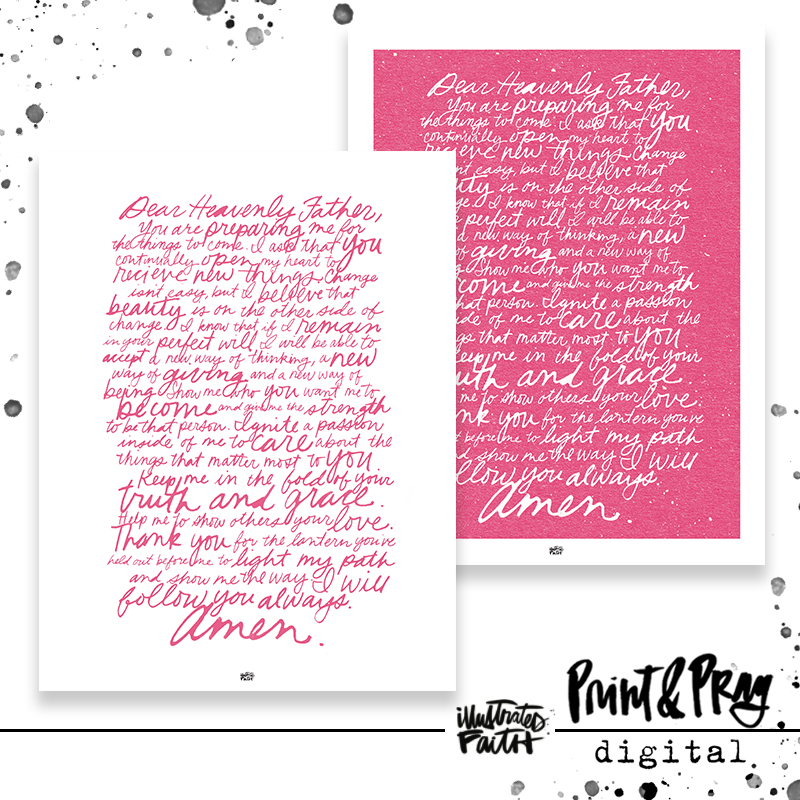 Dear Heavenly Father,
You are preparing me for
the things to come. I ask that you
continually open my heart to
recieve new things. Change
isn't easy, but I believe that
beauty is on the other side of
change. I know that if I remain
in your perfect will I will be able to
accept a new way of thinking, a new
way of giving and a new way of
being. Show me who you want me to
become and give me the strength
to be that person. Ignite a passion
inside of me to care about the
things that matter most to you.
Keep me in the fold of your
truth and grace.
Help me to show others your love.
Thank you for the lantern you've
held out before me to light my path
and show me the way. I will
follow you always.
amen.
Dear Heavenly Father,
You are preparing me for
the things to come. I ask that you
continually open my heart to
recieve new things. Change
n't easy, but I believe that
uty is on the other side of
ge. I know that if I remain
perfect will I will be able to
a new way of thinking, a new
of giving and a new way of
g. Show me who you want me to
ome and give me the strength
hat person. Ignite a passion
de of me to care about the
gs that matter most to you.
eep me in the fold of your
uth and grace.
me to show others your love.
nk you for the lantern you've
t before me to light my path
d show me the way. I will
llow you always.
amen.
illustrated
Faith
Print & Pray
digital